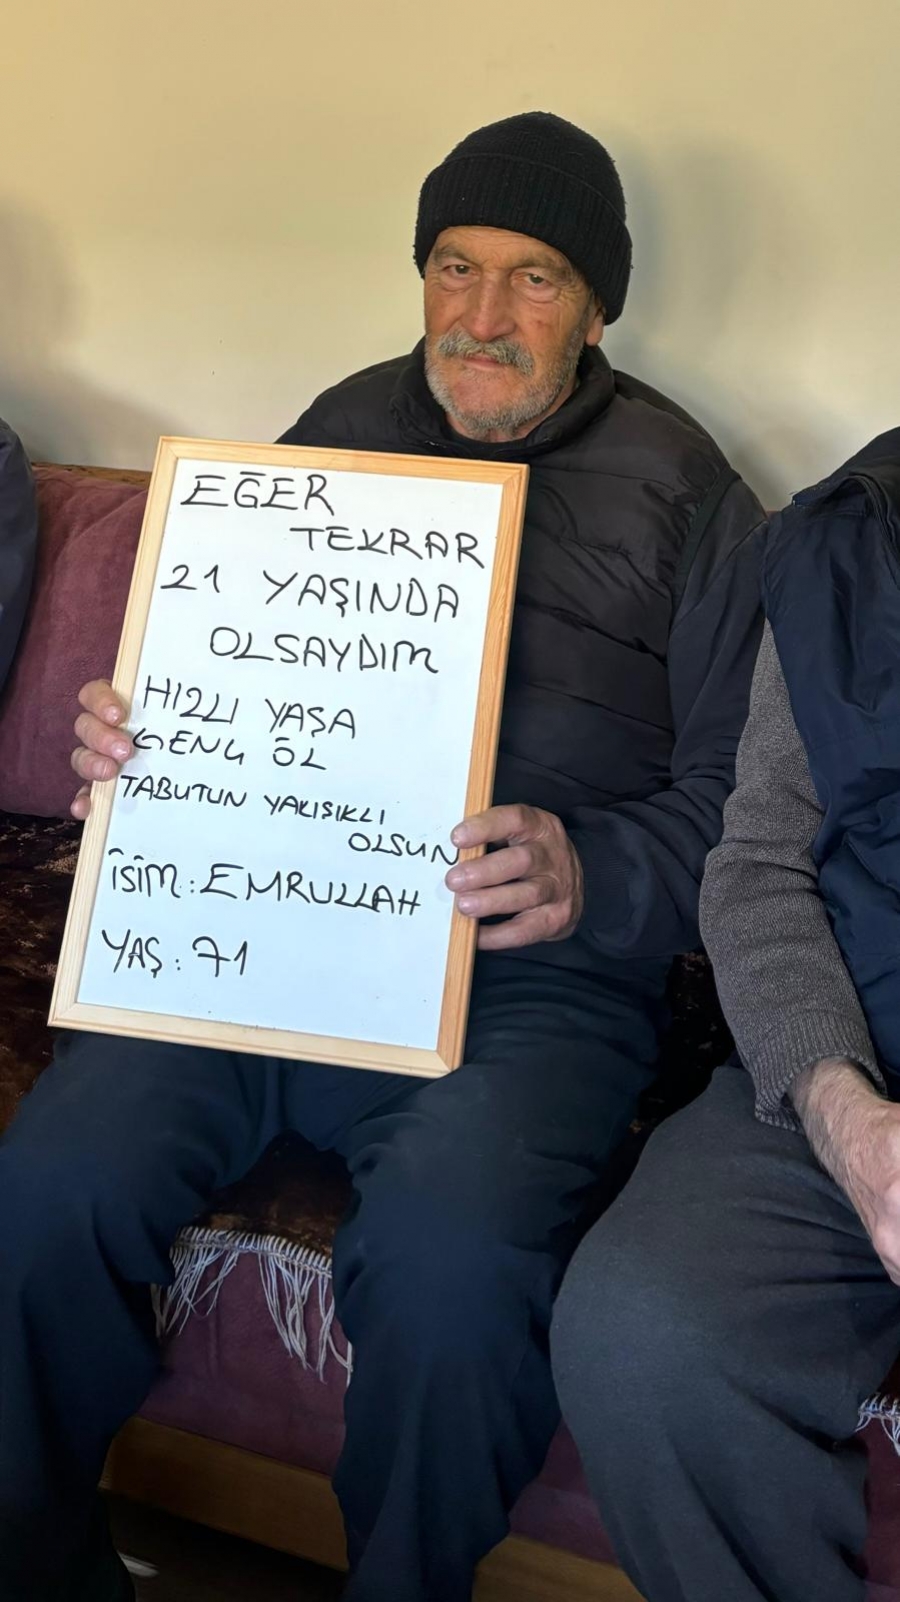 EĞER
TEKRAR
21 YAŞINDA
OLSAYDIM
HIZLI YAŞA
GENÇ ÖL
TABUTUN YAKIŞIKLI
OLSUN
İSİM: EMRULLAH
YAŞ: 71